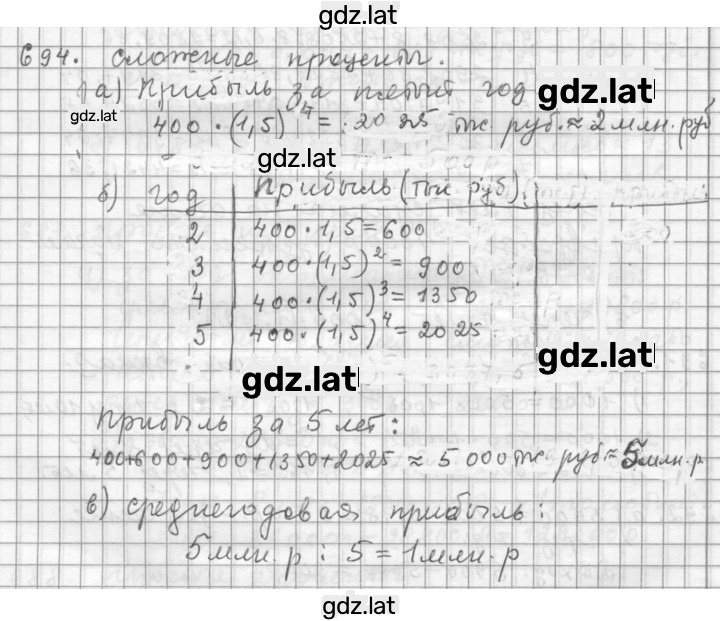 gdz.lat
694. Сложные проценты.
а) Прибыль за пятый год
gdz.lat
gdz.lat
400 · (1,5)⁴ = 2025 тыс. руб. ≈ 2 млн. руб
gdz.lat
б) год | Прибыль (тыс руб)
2 | 400 · 1,5 = 600
3 | 400 · (1,5)² = 900
4 | 400 · (1,5)³ = 1350
5 | 400 · (1,5)⁴ = 2025
gdz.lat
gdz.lat
Прибыль за 5 лет:
400+600+900+1350+2025 ≈ 5 000 тыс. руб ≈ 5 млн. р
в) среднегодовая прибыль:
5 млн. р : 5 = 1 млн. р
gdz.lat